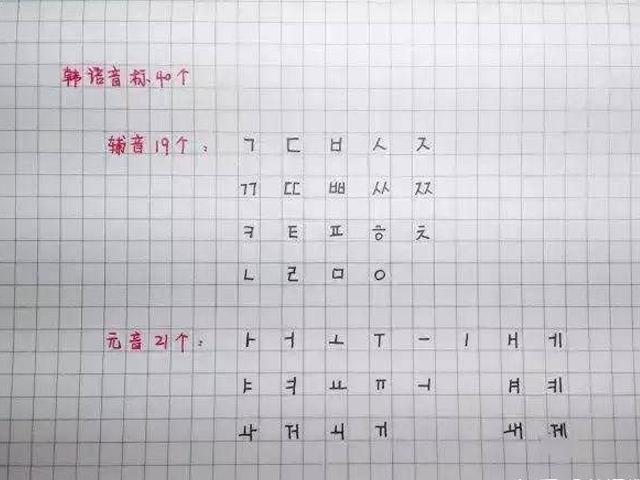 韩语音标40个
辅音19个: ㄱ ㄷ ㅂ ㅅ ㅈ
ㄲ ㄸ ㅃ ㅆ ㅉ
ㅋ ㅌ ㅍ ㅎ ㅊ
ㄴ ㄹ ㅁ ㅇ
元音21个: ㅏ ㅓ ㅗ ㅜ ㅡ ㅣ ㅐ ㅔ
ㅑ ㅕ ㅛ ㅠ ㅢ ㅒ ㅖ
ㅘ ㅝ ㅚ ㅟ ㅙ ㅞ